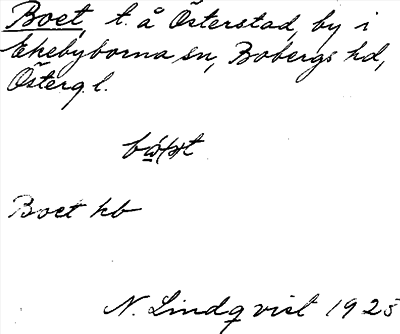 Boet, t. å Österstad, by i
Ekebyborna sn, Bobergs hd,
Österg. l.
Boet kb
N. Lindqvist 1925